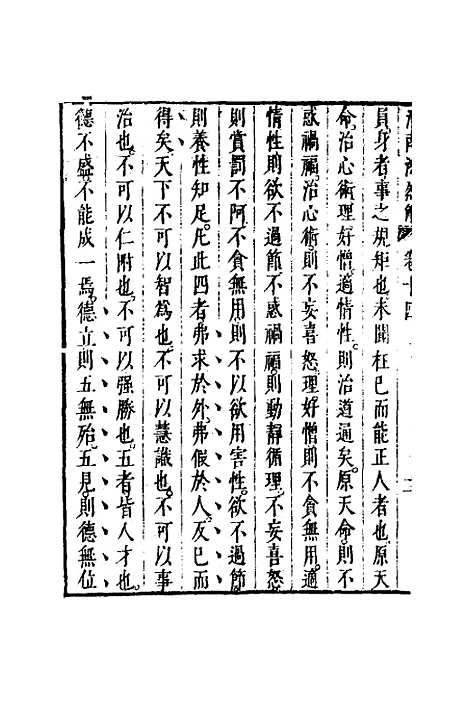 淮南鴻烈解 卷十四
員身者事之規矩也未聞枉己而能正人者也原天
命治心術理好憎適情性則治道通矣原天命則不
惑禍福治心術則不妄喜怒理好憎則不貪無用適
情性則欲不過節不惑禍福則動靜循理不妄喜怒
則賞罰不阿不貪無用則不以欲用害性欲不過節
則養性知足凡此四者弗求於外弗假於人反己而
得矣天下不可以智為也不可以慧識也不可以事
治也不可以仁附也不可以强勝也五者皆人才也
德不盛不能成一焉德立則五無殆五見則德無位